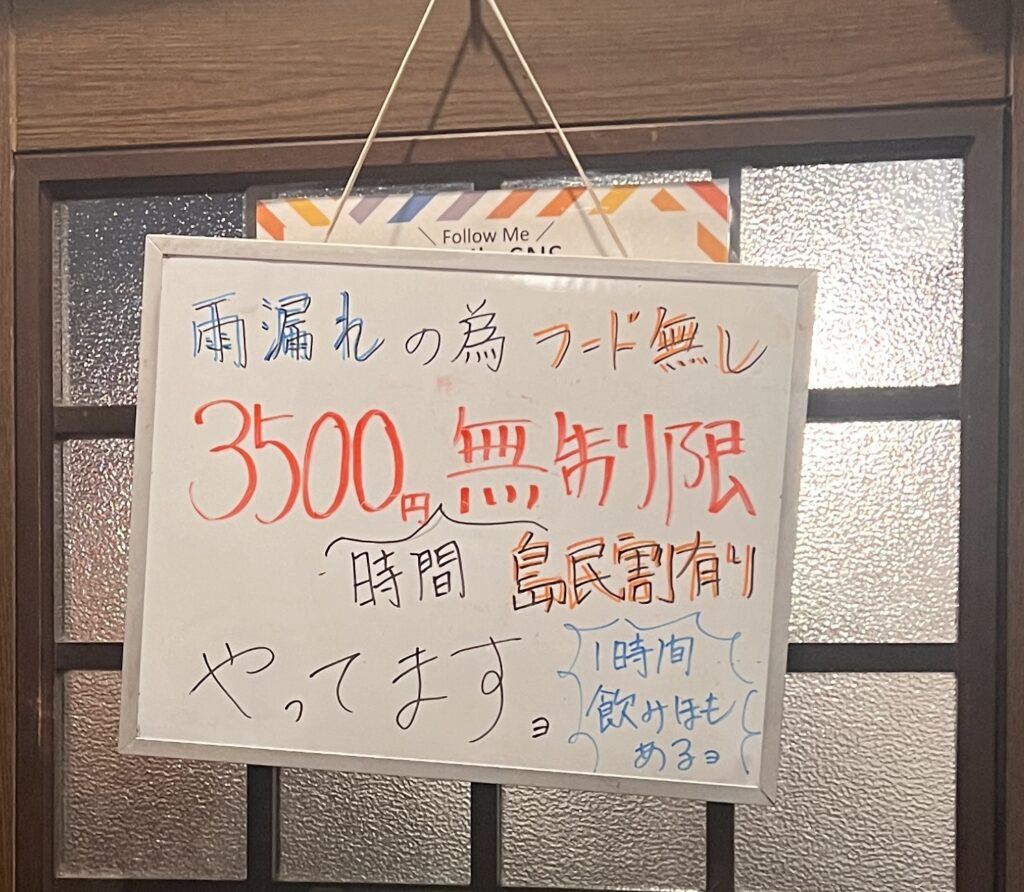 \ Follow Me /
雨漏れの為フード無し
3500円 無制限
時間 島民割有り
やってます。ヨ
1時間
飲みほも
あるヨ